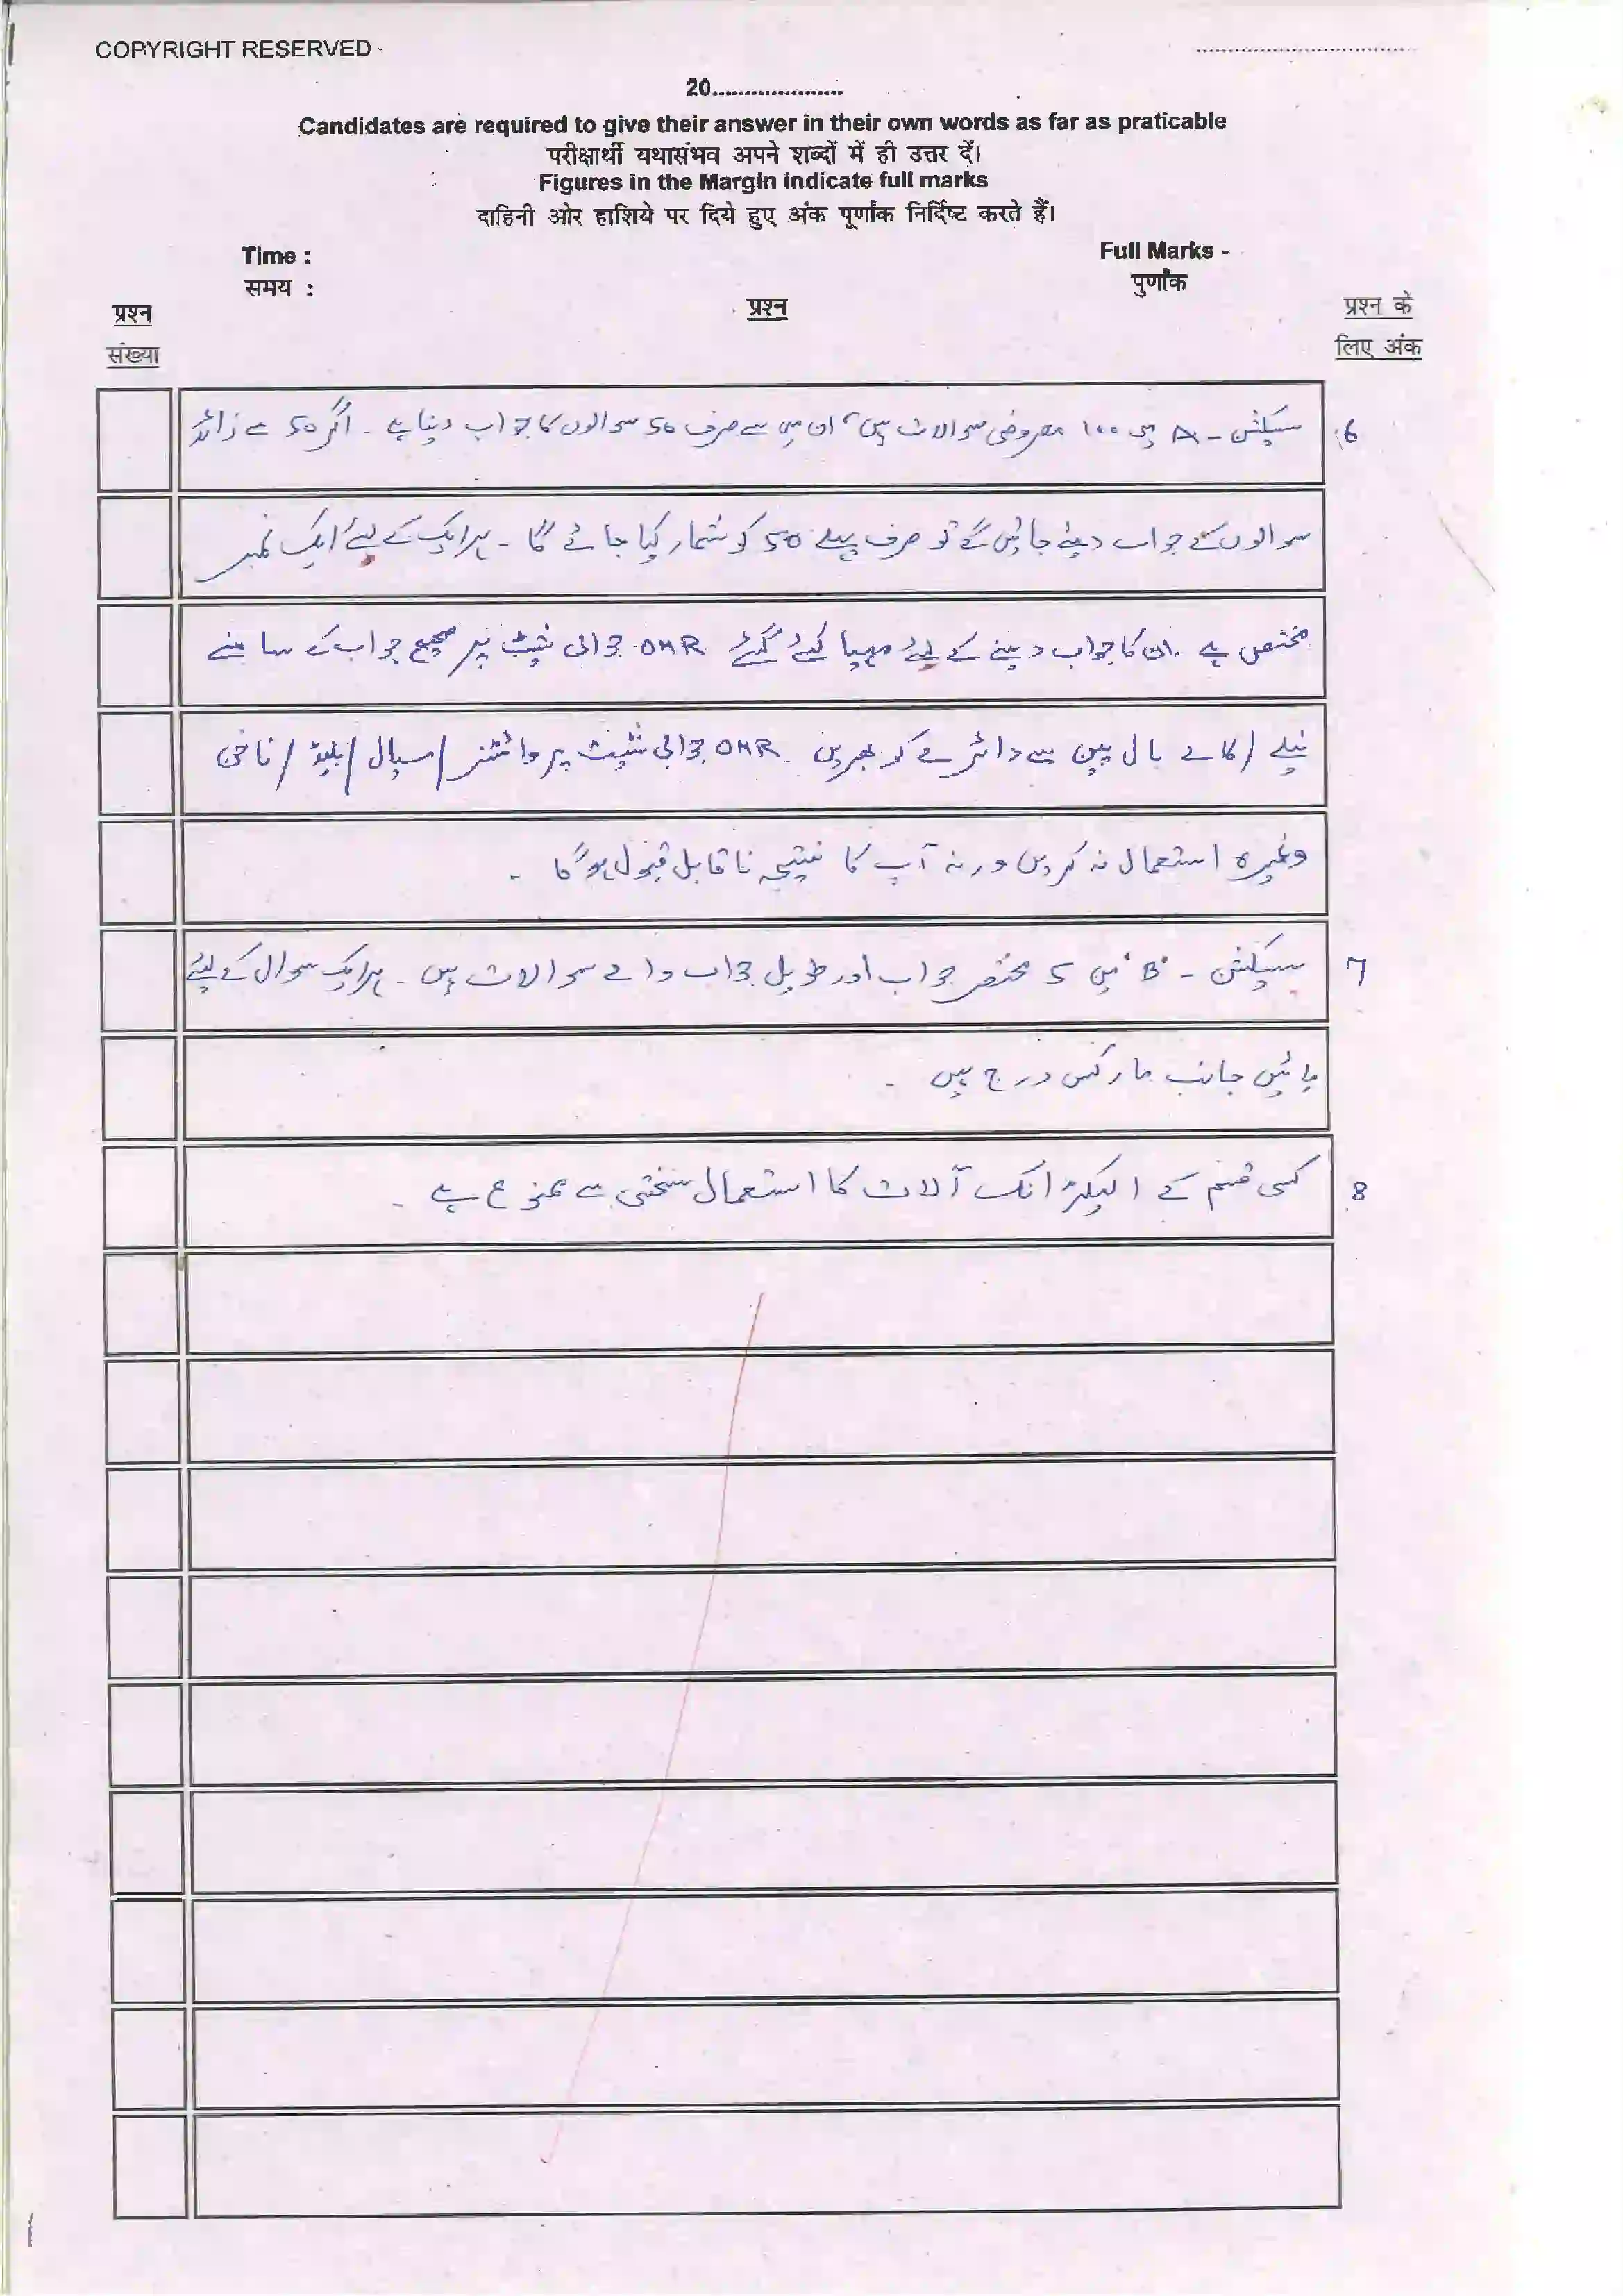 COPYRIGHT RESERVED -
20.....................
Candidates are required to give their answer in their own words as far as praticable
परीक्षार्थी यथासंभव अपने शब्दों में ही उत्तर दें।
Figures in the Margin indicate full marks
दाहिनी ओर हाशिये पर दिये हुए अंक पूर्णांक निर्दिष्ट करते हैं।
Time : Full Marks -
समय : पुर्णांक
प्रश्न प्रश्न प्रश्न के
संख्या लिए अंक
6 سیکشن - A میں ۱۰۰ معروضی سوالات ہیں، ان میں سے صرف 50 سوالوں کا جواب دینا ہے ۔ اگر 50 سے زائد
سوالوں کے جواب دیئے جائیں گے تو صرف پہلے 50 کو شمار کیا جائے گا ۔ ہر ایک کے لیئے ایک نمبر
مختص ہے ۔ ان کا جواب دینے کے لیئے مہیا کیئے گئے OMR جوابی شیٹ پر صحیح جواب کے سامنے
نیلے / کالے بال پین سے دائرے کو بھریں ۔ OMR جوابی شیٹ پر وائٹنر / سیال / بلیڈ / ناخن
وغیرہ استعمال نہ کریں ورنہ آپ کا نتیجہ ناقابل قبول ہوگا ۔
7 سیکشن - 'B' میں 5 مختصر جواب اور طویل جواب والے سوالات ہیں ۔ ہر ایک سوال کے لیئے
بائیں جانب مارکس درج ہیں ۔
8 کسی قسم کے الیکٹرانک آلات کا استعمال سختی سے ممنوع ہے ۔